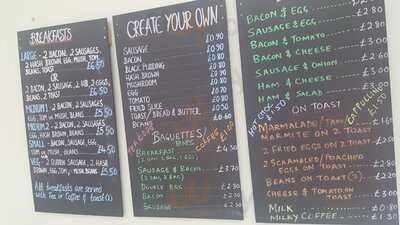 BREAKFASTS
LARGE - 2 BACON, 2 SAUSAGES,
2 HASH BROWN, EGG, MUSH, TOM,
BEANS, TOAST £6.50
OR
2 BACON, 2 SAUSAGES, 2 H.B, 2 EGGS,
BEANS, 2 TOAST £6.50
MEDIUM 1 - 2 BACON, 2 SAUSAGES,
EGG, TOM OR MUSH, BEANS £5.50
MEDIUM 2 - 2 BACON, 2 SAUSAGES,
EGG, HASH BROWN, BEANS £5.50
SMALL - BACON, SAUSAGE, EGG,
TOM OR MUSH, BEANS £4.50
VEG - 2 QUORN SAUSAGE, 2 HASH
BROWN, EGG, TOM, MUSH, BEANS £5.50
All breakfasts are served
with Tea or Coffee & toast(1)
CREATE YOUR OWN
SAUSAGE £0.90
BACON £0.90
BLACK PUDDING £0.80
HASH BROWN £0.80
MUSHROOM £0.90
EGG £0.90
TOMATO £0.90
FRIED SLICE £0.90
TOAST / BREAD & BUTTER £0.50
BEANS £0.90
BAGUETTES
BREAKFAST £4.50
SAUSAGE & BACON £3.70
DOUBLE EGG £2.30
BACON £2.50
SAUSAGE £2.50
COFFEE £1.00
BACON & EGG
SAUSAGE & EGG £2.80
BACON & TOMATO £2.80
BACON & CHEESE £3.00
SAUSAGE & ONION £2.60
HAM & CHEESE £3.00
HAM & SALAD
HOT CHOC £1.50
CAPPUCCINO
ON TOAST
MARMALADE/JAM £1.60
MARMITE ON 2 TOAST
2 FRIED EGGS ON 2 TOAST
2 SCRAMBLED/POACHED
EGGS ON 2 TOAST £2.80
BEANS ON TOAST (2) £2.20
CHEESE & TOMATO ON
TOAST £3.00
MILK £0.80
MILKY COFFEE £1.30